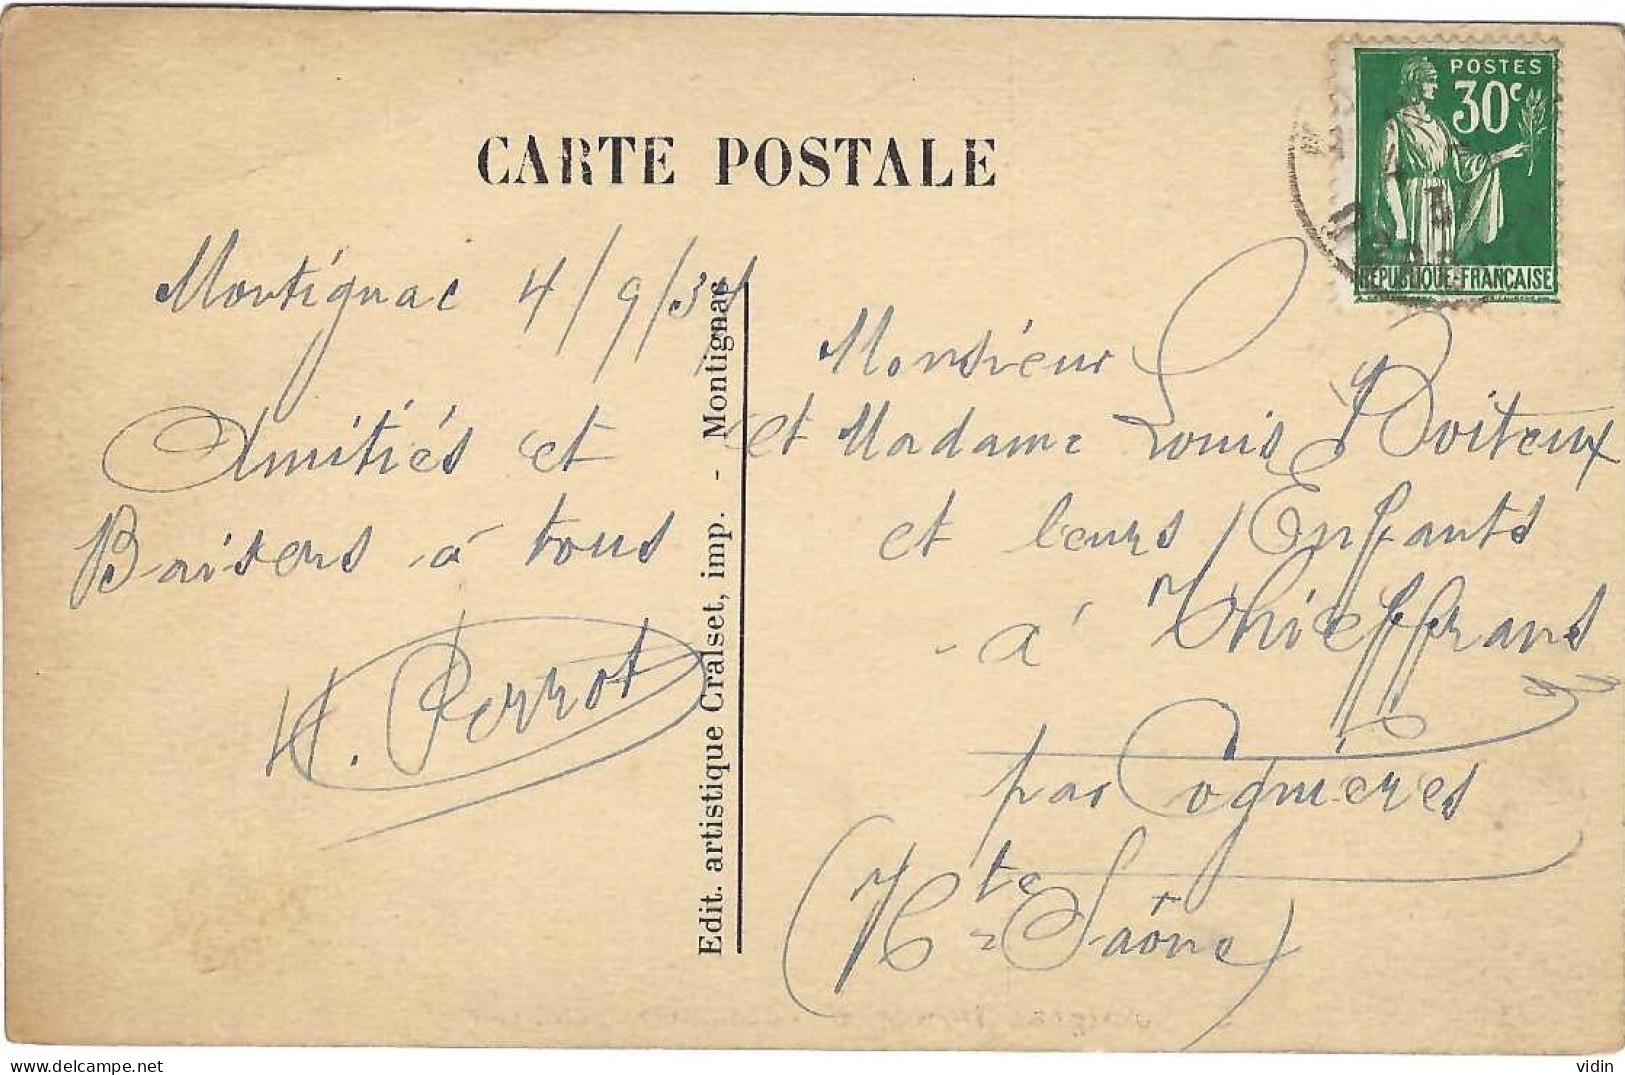 POSTES
30c
RÉPUBLIQUE-FRANÇAISE
CARTE POSTALE
Montignac 4/9/37
Amitiés et
Baisers à tous
H. Perrot
Edit. artistique Cralset, imp. - Montignac
Monsieur
et Madame Louis Boiteux
et leurs Enfants
à Thieffrans
par Cognières
(Hte-Saône)
vidin